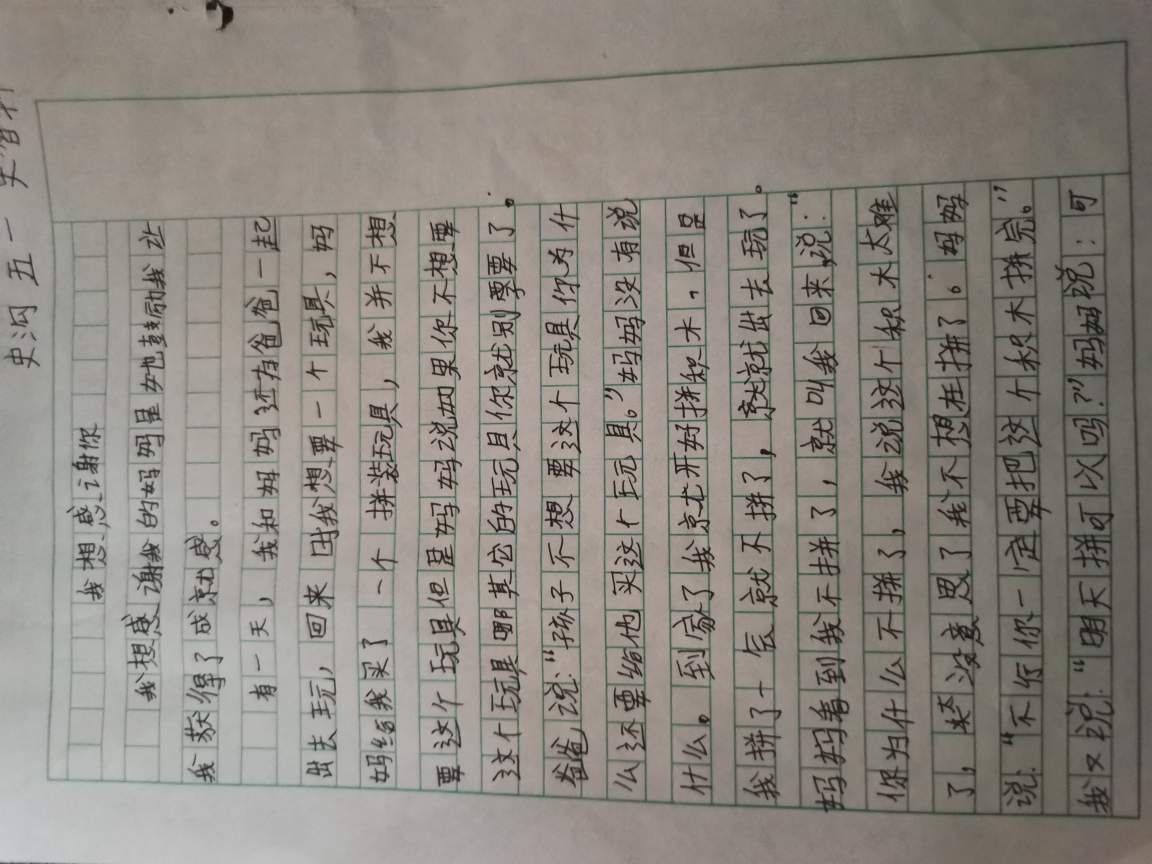 史沟 五一 史
我想感谢你
我想感谢我的妈妈是她鼓励我让
我获得了成就感。
有一天，我和妈妈还有爸爸一起
出去玩，回来时我想要一个玩具，妈
妈给我买了一个拼装玩具，我并不想
要这个玩具但是妈妈说如果你不想要
这个玩具哪其它的玩具你就别要要了。
爸爸说：“孩子不想要这个玩具你为什
么还要给他买这个玩具。”妈妈没有说
什么。到家了我就开好拼积木，但是
我拼了一会就不拼了，就就出去玩了。
妈妈看到我不拼了，就叫我回来，说：“
你为什么不拼了，我说这个积木太难
了，没意思了我不想在拼了。妈妈
说：“不行你一定要把这个积木拼完。”
我又说：“明天拼可以吗？”妈妈说：可